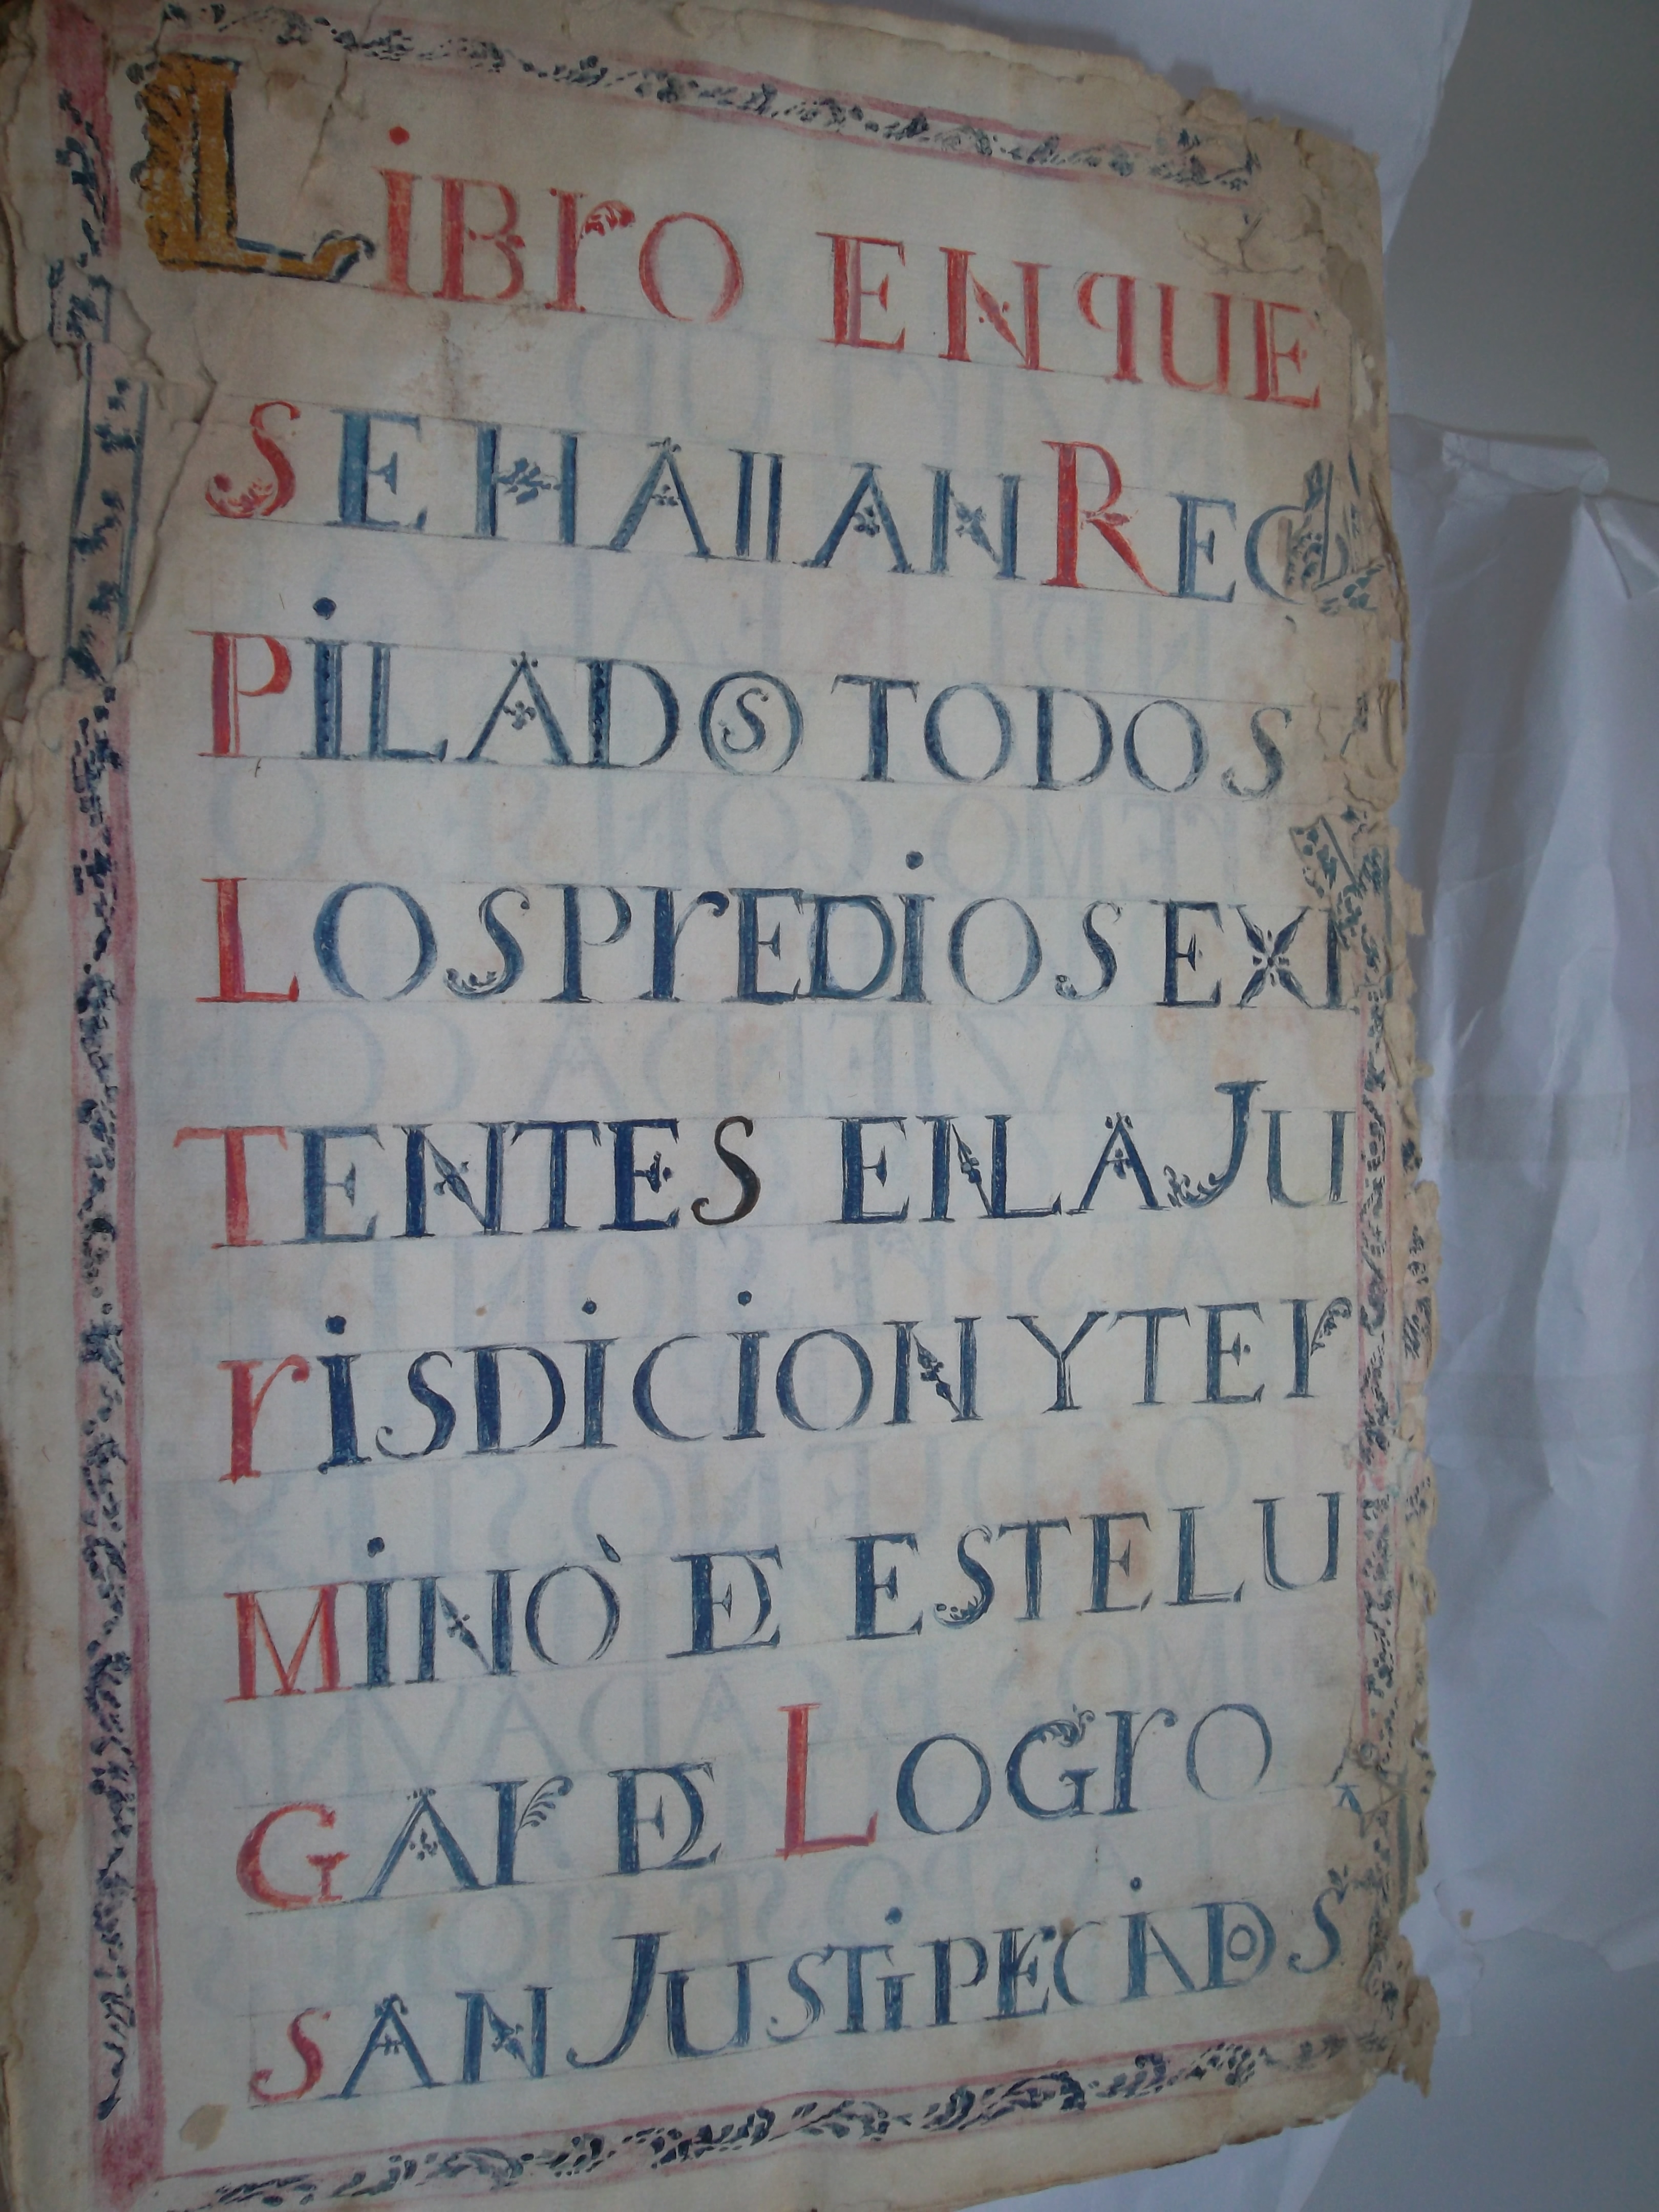 LiBrO ENqUE
SE HAIIAN REC
PiLADOS TODOS
LOS PrEDiOS EXI
TENTES EN LA JU
riSDICION Y TEr
MiNÒ DE ESTE LU
GAr DE LOGrO
SAN JUSTiPECIADOS